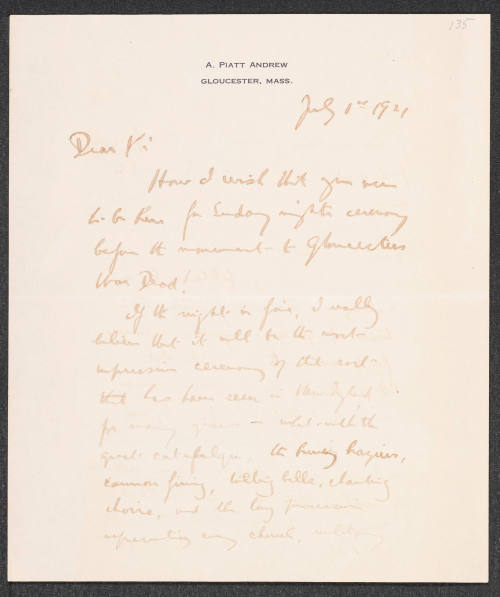 135
A. PIATT ANDREW
GLOUCESTER, MASS.
July 1st 1921
Dear Vi
How I wish that you were
to be here for Sunday night's ceremony
before the monument to Gloucester's
War Dead.
If the night is fair, I really
believe that it will be the most
impressive ceremony of that sort
that has been seen in New England
for many years — what with the
great catafalque, the burning braziers,
cannon firing, tolling bells, chanting
choirs, and the long procession
representing every church, military